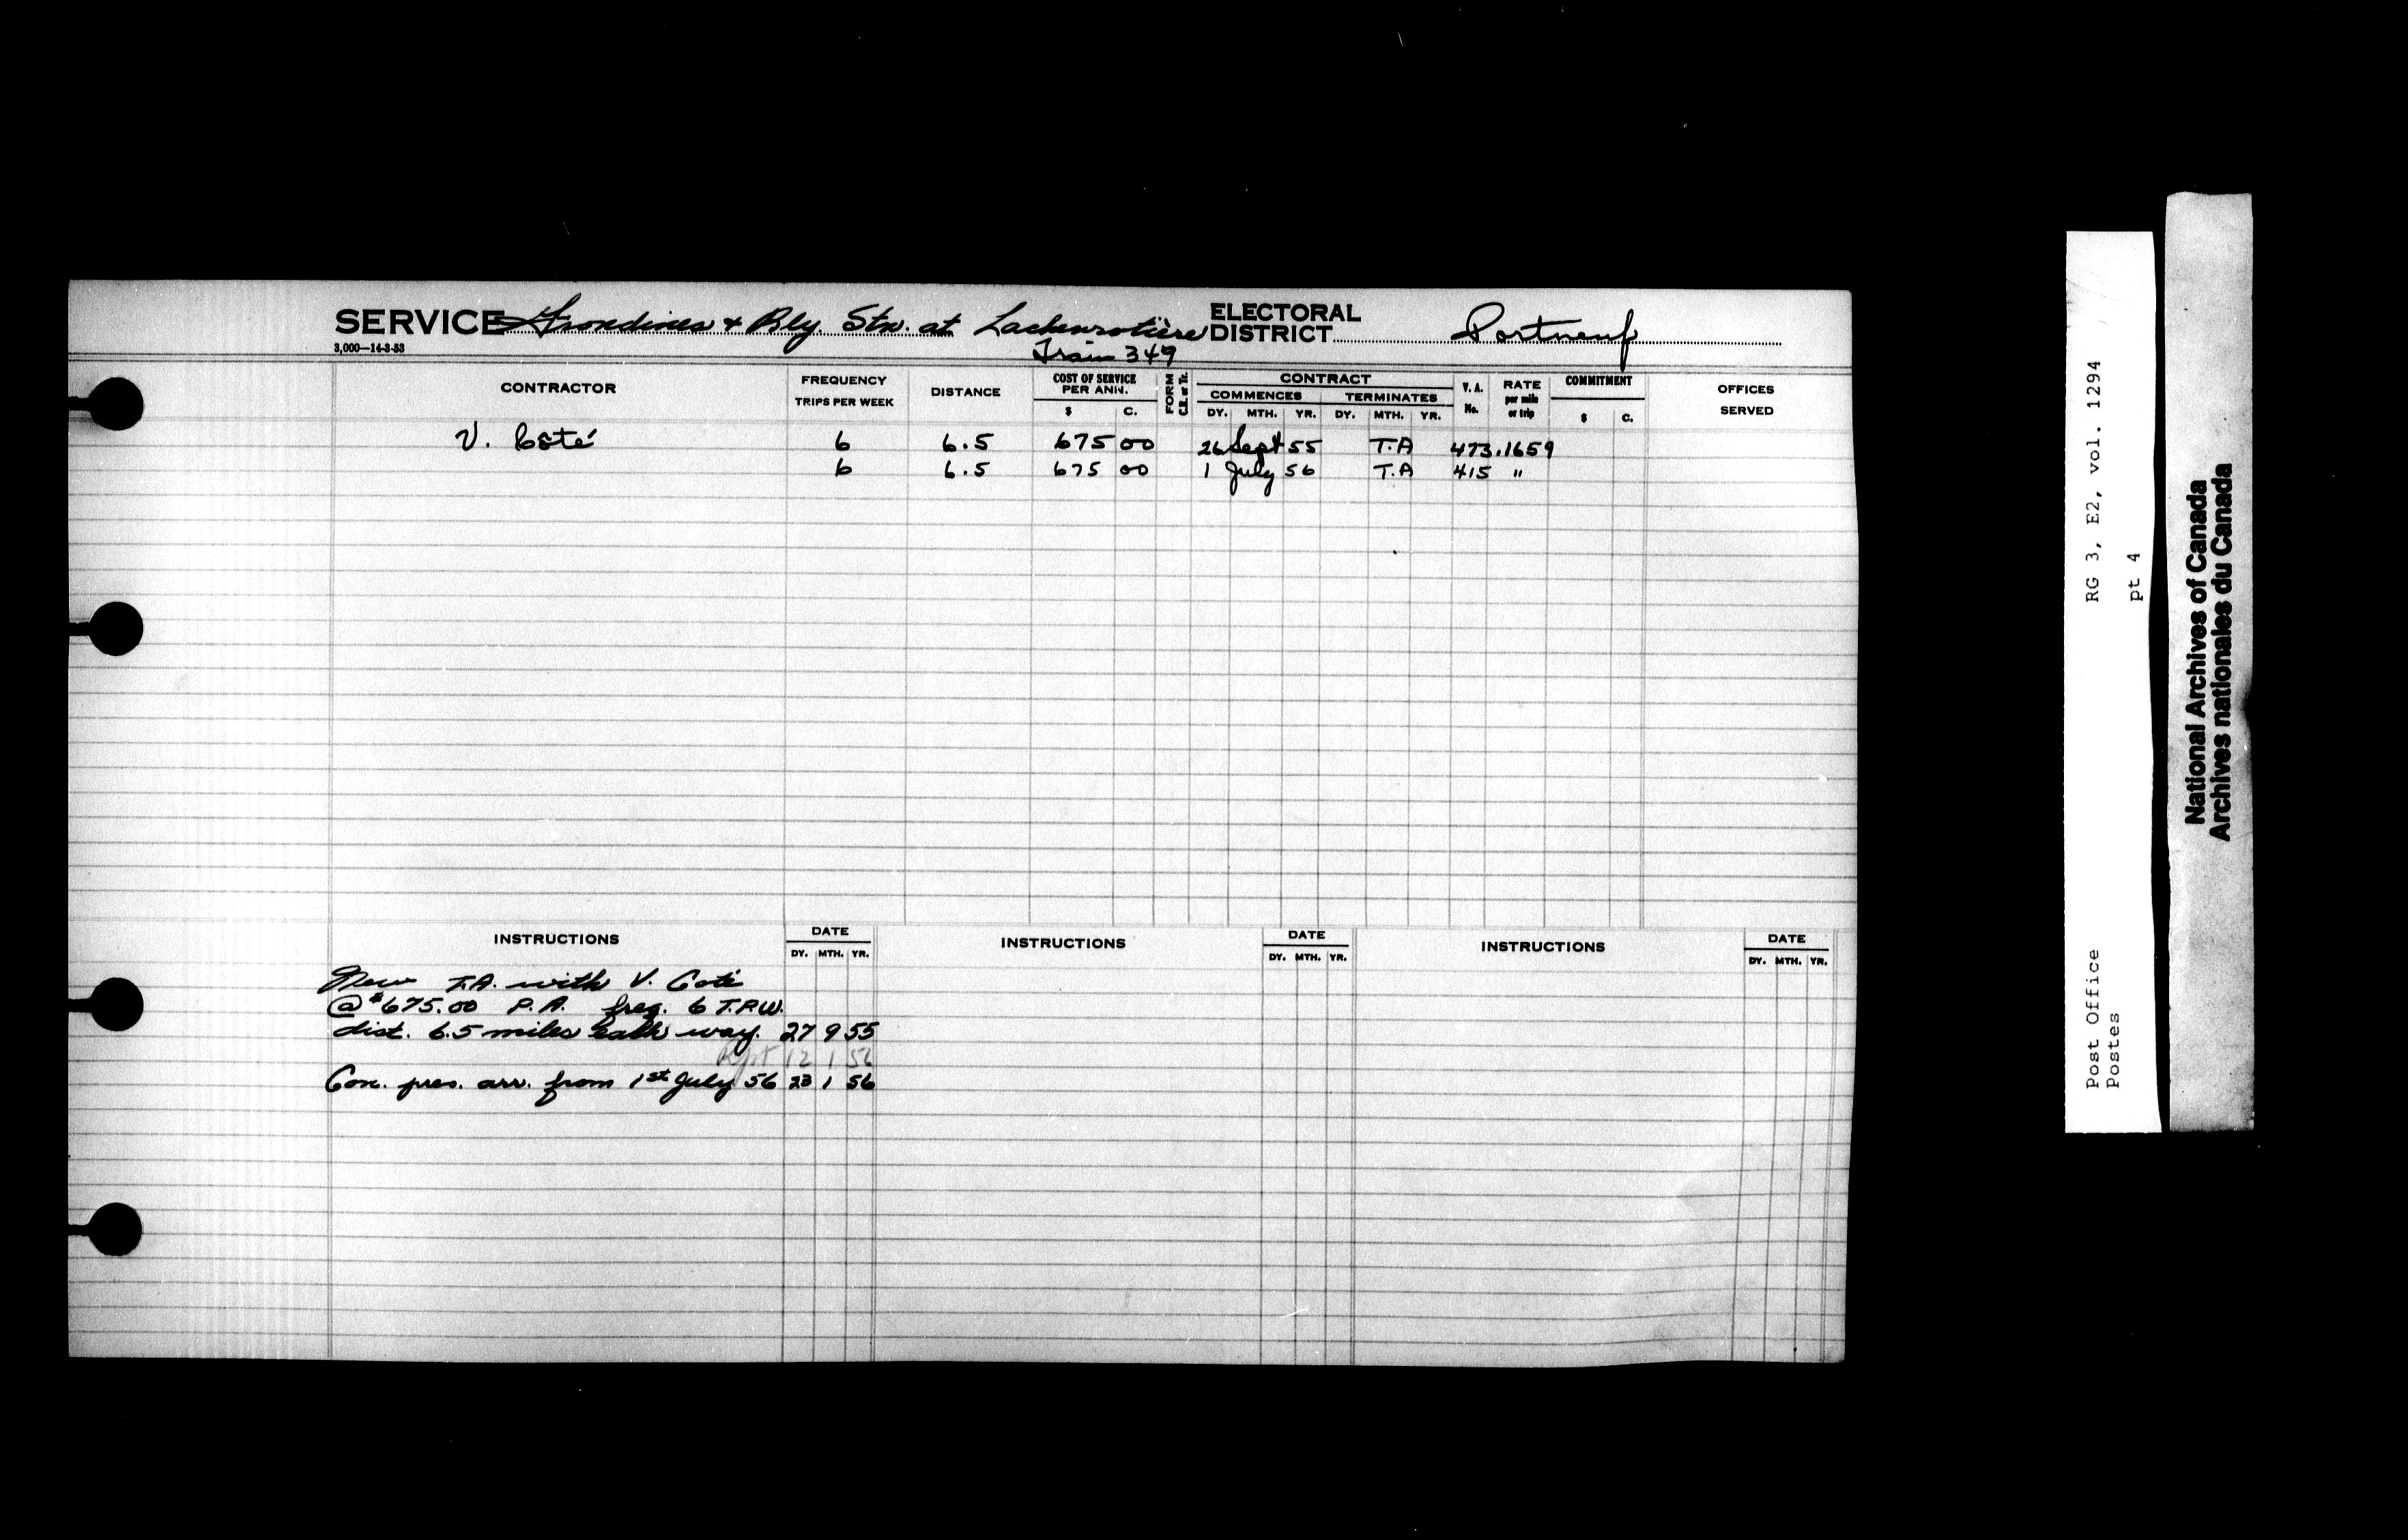 SERVICE Grondines & Rly. Stn. at Lachevrotière ELECTORAL DISTRICT Portneuf
3,000—14-3-53
Train 349
CONTRACTOR FREQUENCY TRIPS PER WEEK DISTANCE COST OF SERVICE PER ANN. $ C. FORM C.R. or Tr. CONTRACT COMMENCES DY. MTH. YR. TERMINATES DY. MTH. YR. V. A. No. RATE per mile or trip COMMITMENT $ C. OFFICES SERVED
V. Côté 6 6.5 675 00 26 Sept 55 T.A 473 .1659
6 6.5 675 00 1 July 56 T.A 415 "
INSTRUCTIONS DATE DY. MTH. YR. INSTRUCTIONS DATE DY. MTH. YR. INSTRUCTIONS DATE DY. MTH. YR.
New T.A. with V. Coté
@ $675.00 P.A. freq. 6 T.P.W.
dist. 6.5 miles each way. 27 9 55
12 1 56
Con. pres. arr. from 1st July 56 23 1 56
RG 3, E2, vol. 1294
pt 4
Post Office
Postes
National Archives of Canada
Archives nationales du Canada